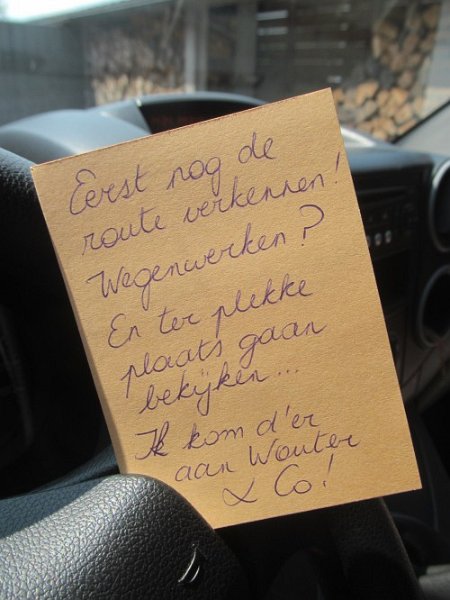 Eerst nog de
route verkennen!
Wegenwerken?
En ter plekke
plaats gaan
bekijken...
Ik kom d'er
aan Wouter
& Co!